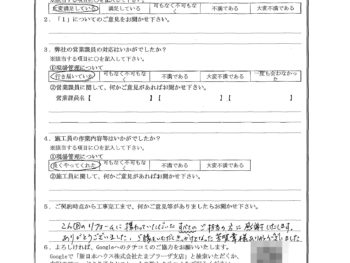 ※該当する項目に○を記入して下さい。
大変満足している 満足している 可もなく不可もなく 不満である 大変不満である
2．「1」についてのご意見をお聞かせ下さい。
3．弊社の営業課員の対応はいかがでしたか？
※該当する項目に○を記入して下さい。
①現場管理について
行き届いている 可もなく不可もなく 不満である 大変不満である 一度も会わなかった
②営業課員に関して、何かご意見があればお聞かせ下さい。
営業課長名【 】【 】【 】
4．施工員の作業内容等はいかがでしたか？
※該当する項目に○を記入して下さい。
①現場管理について
良くやってくれた 可もなく不可もなく 不満である 大変不満である
②施工員に関して、何かご意見があればお聞かせ下さい。
5．ご契約時点から工事完工まで、何かご意見等がありましたらお聞かせ下さい。
この度のリフォームに携わっていただいたすべてのご担当の方に感謝いたします。
ありがとうございました。ご縁をいただき
6．よろしければ、Googleへのクチコミのご協力をお願いいたします。
Googleで「新日本ハウス株式会社たまプラーザ支店」と検索いただくか、